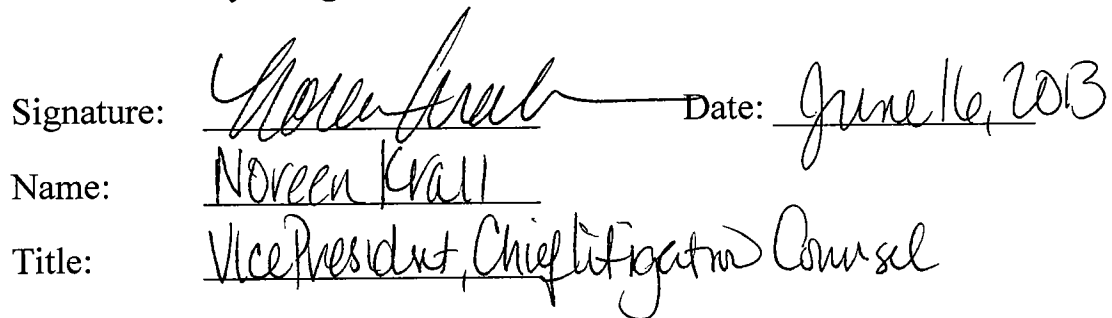 Signature: Noreen Krall Date: June 16, 2013
Name: Noreen Krall
Title: Vice President, Chief Litigation Counsel